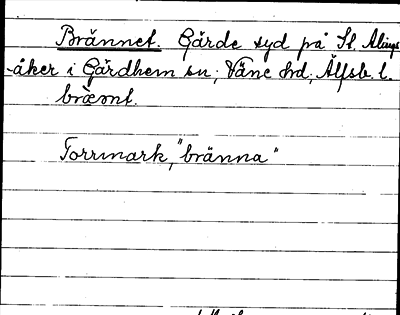 Brännet. Gärde syd på St. Alings
-åker i Gärdhem sn; Väne hrd; Älfsb. l.
bræ̀nt.
Torrmark, "bränna"